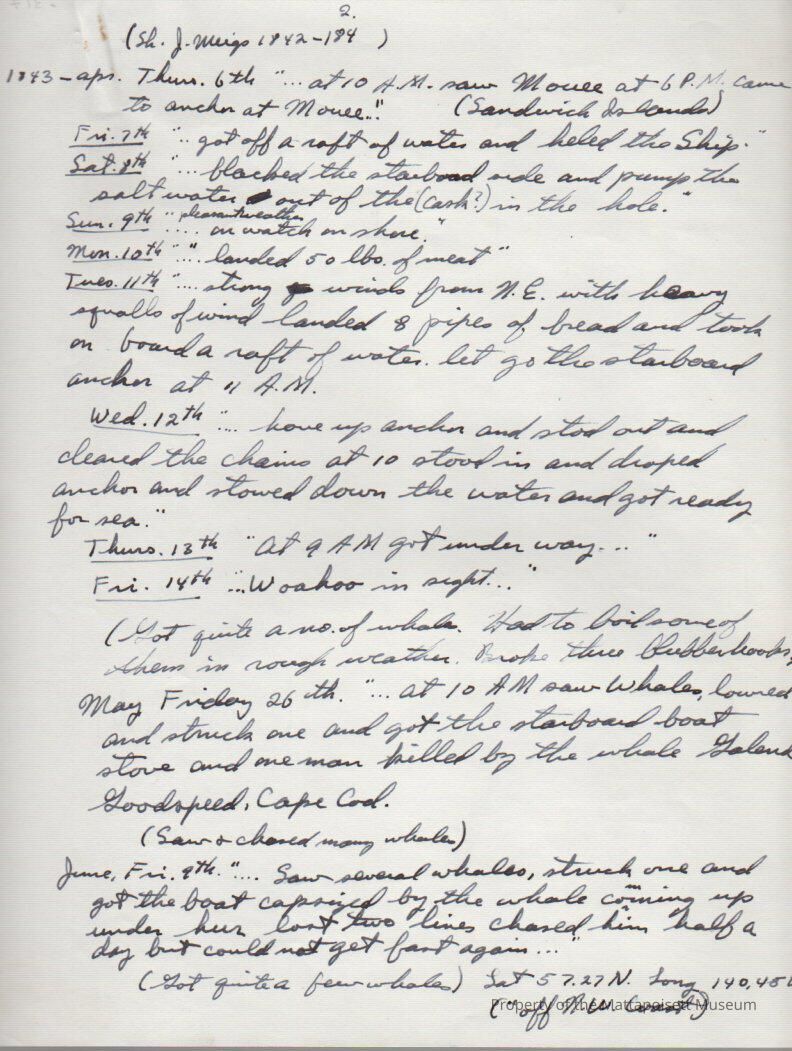 2.
(Sh. J. Meigs 1842-184 )
1843 - apr. Thurs. 6th "... at 10 A.M. saw Mouee at 6 P.M. came
to anchor at Mouee..." (Sandwich Islands)
Fri. 7th ".. got off a raft of water and heled the Ship."
Sat. 8th "... blocked the starboard side and pump the
salt water out of the (cask?) in the hole."
Sun. 9th "pleasant weather
.... on watch on shore."
Mon. 10th "... landed 50 lbs. of meat"
Tues. 11th ".... strong winds from N.E. with heavy
squalls of wind landed 8 pipes of bread and took
on board a raft of water. let go the starboard
anchor at 11 A.M.
Wed. 12th ".... hove up anchor and stod out and
cleared the chains at 10 stood in and droped
anchor and stowed down the water and got ready
for sea."
Thurs. 13th "At 9 AM got under way..."
Fri. 14th "...Woahoo in sight..."
(Got quite a no. of whale. Had to boil some of
them in rough weather. Broke three blubberhooks,
May Friday 26th. "... at 10 AM saw Whales, lowred
and struck one and got the starboard boat
stove and one man killed by the whale
Goodspeed, Cape Cod.
(Saw & chased many whales)
June, Fri. 9th. ".... Saw several whales, struck one and
got the boat capsized by the whale coming up
under hur lost two lines chased him half a
day but could not get fast again..."
(Got quite a few whales) Lat 57.27 N. Long 140,45
("off N.W. Coast")
Property of the Mattapoisett Museum